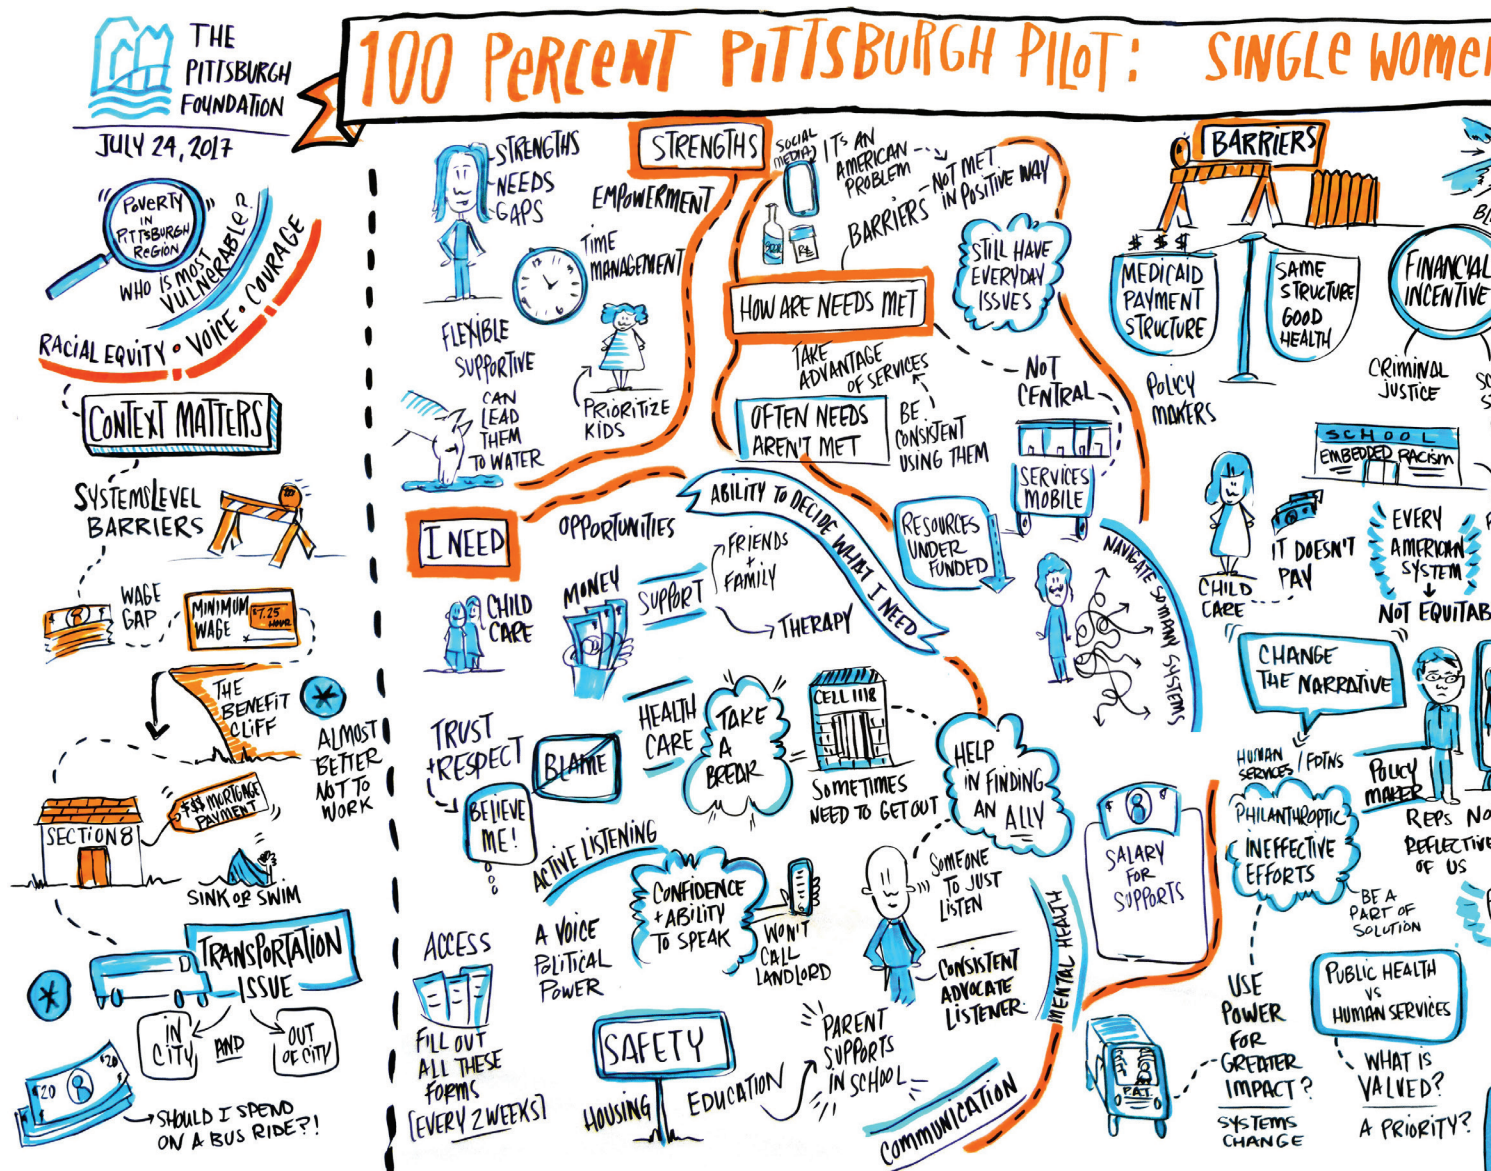 THE
PITTSBURGH
FOUNDATION
JULY 24, 2017
100 PERCENT PITTSBURGH PILOT: SINGLE WOMEN
"POVERTY
IN
PITTSBURGH
REGION"
WHO IS MOST
VULNERABLE?
RACIAL EQUITY • VOICE • COURAGE
CONTEXT MATTERS
SYSTEMS LEVEL
BARRIERS
WAGE
GAP
MINIMUM
WAGE
$7.25
HOUR
THE
BENEFIT
CLIFF
ALMOST
BETTER
NOT TO
WORK
SECTION 8
$$$ MORTGAGE
PAYMENT
SINK OR SWIM
TRANSPORTATION
ISSUE
IN
CITY
AND
OUT
OF CITY
$20
$20
SHOULD I SPEND
ON A BUS RIDE?!
STRENGTHS
NEEDS
GAPS
STRENGTHS
EMPOWERMENT
TIME
MANAGEMENT
FLEXIBLE
SUPPORTIVE
CAN
LEAD
THEM
TO WATER
PRIORITIZE
KIDS
SOCIAL
MEDIA
IT'S AN
AMERICAN
PROBLEM
NOT MET
IN POSITIVE WAY
BARRIERS
STILL HAVE
EVERYDAY
ISSUES
HOW ARE NEEDS MET
TAKE
ADVANTAGE
OF SERVICES
OFTEN NEEDS
AREN'T MET
BE
CONSISTENT
USING THEM
NOT
CENTRAL
SERVICES
MOBILE
I NEED
OPPORTUNITIES
ABILITY TO DECIDE WHAT I NEED
RESOURCES
UNDER
FUNDED
NAVIGATE SO MANY SYSTEMS
CHILD
CARE
MONEY
SUPPORT
FRIENDS
+
FAMILY
THERAPY
TRUST
+ RESPECT
BLAME
HEALTH
CARE
TAKE
A
BREAK
=
CELL 1118
SOMETIMES
NEED TO GET OUT
HELP
IN FINDING
AN ALLY
BELIEVE
ME!
ACTIVE LISTENING
CONFIDENCE
+ ABILITY
TO SPEAK
WON'T
CALL
LANDLORD
SOMEONE
TO JUST
LISTEN
CONSISTENT
ADVOCATE
LISTENER
MENTAL HEALTH
ACCESS
FILL OUT
ALL THESE
FORMS
[EVERY 2 WEEKS]
A VOICE
POLITICAL
POWER
SAFETY
HOUSING
EDUCATION
PARENT
SUPPORTS
IN SCHOOL
COMMUNICATION
SALARY
FOR
SUPPORTS
P.A.T.
BARRIERS
$ $ $
MEDICAID
PAYMENT
STRUCTURE
SAME
STRUCTURE
GOOD
HEALTH
FINANCIAL
INCENTIVE
CRIMINAL
JUSTICE
POLICY
MAKERS
SCHOOL
EMBEDDED RACISM
CHILD
CARE
IT DOESN'T
PAY
EVERY
AMERICAN
SYSTEM
NOT EQUITAB
CHANGE
THE NARRATIVE
HUMAN
SERVICES / FDTNS
POLICY
MAKER
REPS NO
REFLECTIVE
OF US
PHILANTHROPIC
INEFFECTIVE
EFFORTS
BE A
PART OF
SOLUTION
USE
POWER
FOR
GREATER
IMPACT?
SYSTEMS
CHANGE
PUBLIC HEALTH
VS
HUMAN SERVICES
WHAT IS
VALUED?
A PRIORITY?